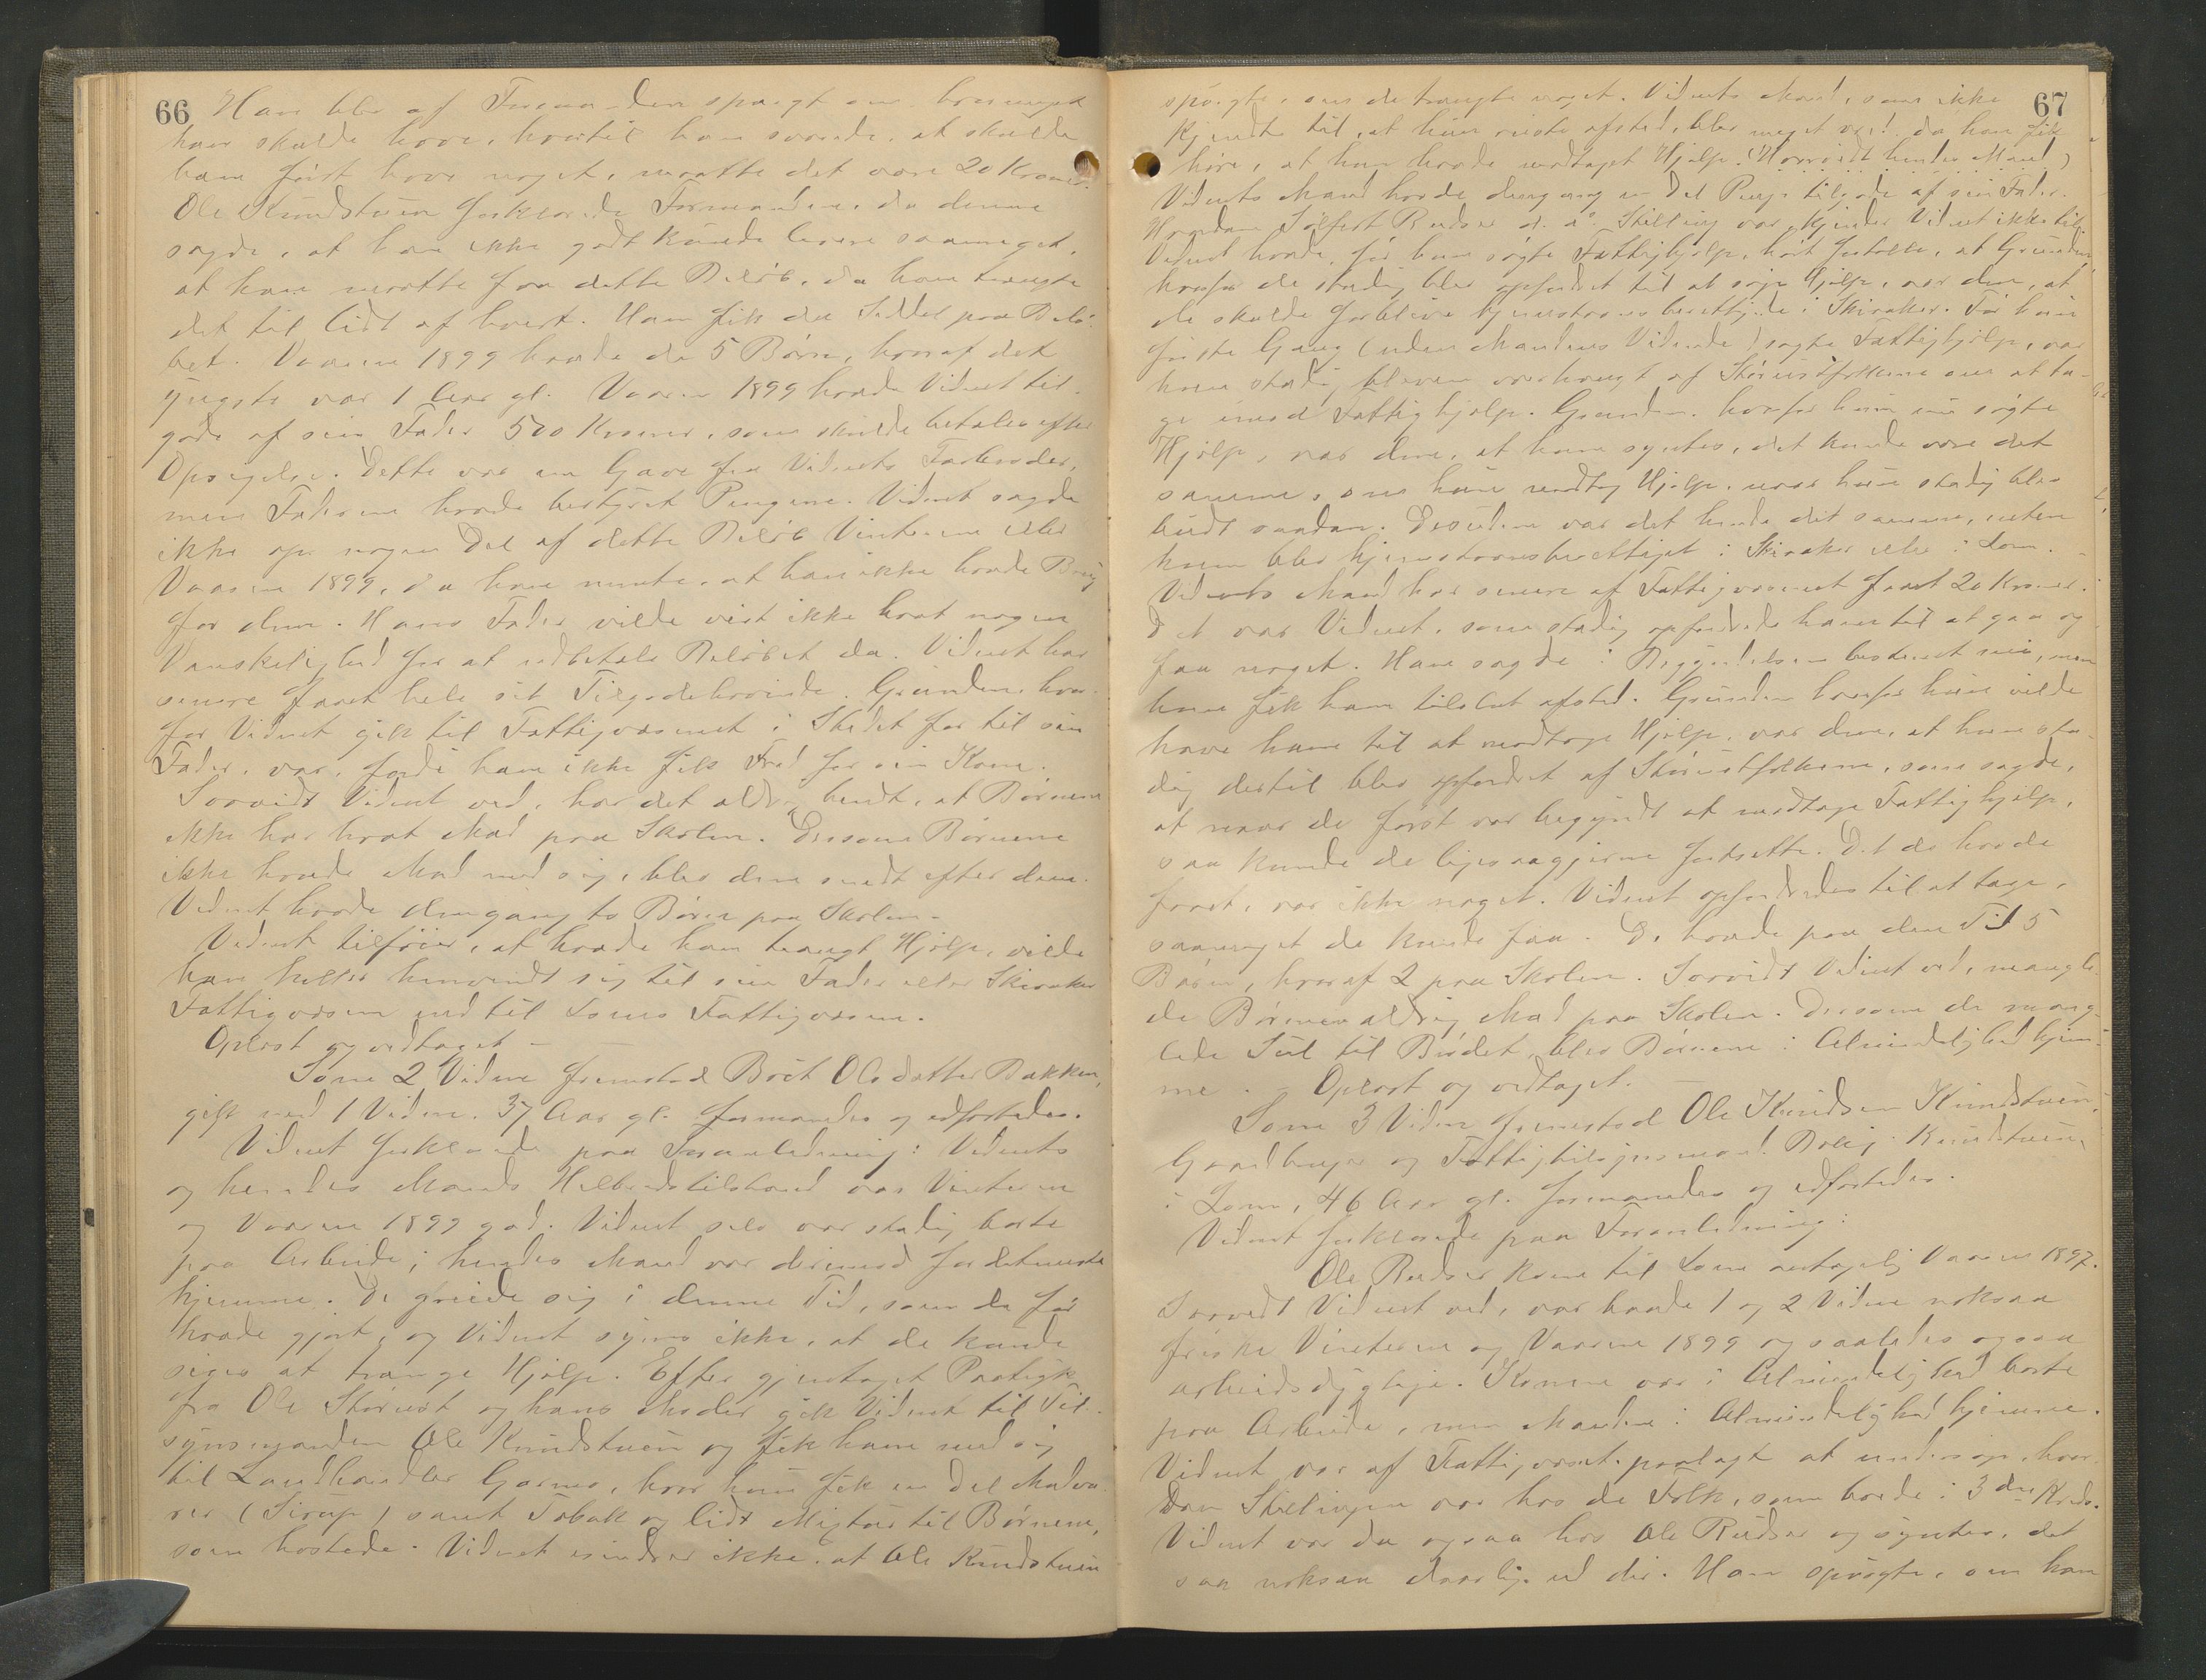 66
Han blev af Formanden spurgt om hvormeget
han skulde have, hvortil han svarede, at skulde
han først have noget, maatte det være 20 Kroner.
Ole Kundstuen forklarede Formanden, da denne
sagde, at han ikke godt kunde levere saameget,
at han maatte faa dette Beløb, da han trængte
det til lidt af hvert. Han fik da Seddel paa Belø-
bet. Vaaren 1899 havde de 5 Børn, hvoraf det
yngste var 1 Aar gl. Vaaren 1899 havde Vidnet til-
gode af sin Fader 500 Kroner, som skulde betales efter
Opsigelse. Dette var en Gave fra Vidnets Farbroder,
men Faderen havde bestyret Pengene. Vidnet sagde
ikke op nogen Del af dette Beløb Vinteren eller
Vaaren 1899, da han mente, at han ikke havde Brug
for dem. Hans Fader vilde vist ikke havt nogen
Vanskelighed for at udbetale Beløbet da. Vidnet har
senere faaet hele sit Tilgodehavende. Grunden, hvor-
for Vidnet gik til Fattigvæsenet i Stedet for til sin
Fader, var, fordi han ikke fik Fred for sin Kone.
Saavidt Vidnet ved, har det aldrig hendt, at Børnene
ikke har havt Mad paa Skolen. Dersom Børnene
ikke havde Mad med sig, blev den sendt efter dem.
Vidnet havde dengang to Børn paa Skolen.
Vidnet tilføier, at havde han trængt Hjælp, vilde
han heller henvendt sig til sin Fader eller Skiaker
Fattigvæsen end til Loms Fattigvæsen.
Oplæst og vedtaget –
Som 2 Vidne fremstod Brit Olsdatter Bakken,
gift med 1 Vidne. 37 Aar gl. formanedes og edfæstedes.
Vidnet forklarede paa Foranledning: Vidnets
og hendes Mands Helbredstilstand var Vinteren
og Vaaren 1899 god. Vidnet selv var stadig borte
paa Arbeide; hendes Mand var derimod for det meste
hjemme. De greiede sig i denne Tid, som de før
havde gjort, og Vidnet synes ikke, at de kunde
siges at trænge Hjælp. Efter gjentaget Paatryk
fra Ole Skørust og hans Moder gik Vidnet til Til-
synsmanden Ole Kundstuen og fik ham med sig
til Landhandler Garmo, hvor hun fik en Del Madva-
rer (Sirup) samt Tobak og lidt Mixtur til Børnene,
som hostede. Vidnet erindrer ikke, at Ole Kundstuen
67
spurgte, om de trængte noget. Vidnets Mand, som ikke
kjendte til, at hun reiste afsted, blev meget vred, da han fik
høre, at hun havde modtaget Hjælp. (Hørvidt hendes Mand)
Vidnets Mand havde dengang en Del Penge tilgode af sin Fader.
Hvordan Sølfest Rudser d. æ. Stilling var, kjender Vidnet ikke til.
Vidnet havde, før hun søgte Fattighjælp, hørt fortælle, at Grunden,
hvorfor de stadig blev opfordret til at søge Hjælp, var den, at
de skulde forblive hjemstavnsberettigede i Skiaker. Før hun
første Gang (uden Mandens Vidende) søgte Fattighjælp, var
hun stadig bleven overhængt af Skørustfolkene om at ta-
ge imod Fattighjælp. Grunden, hvorfor hun nu søgte
Hjælp, var den, at hun syntes, det kunde være det
samme, om hun modtog Hjælp, naar hun stadig blev
budt saadan. Desuden var det hende det samme, enten
hun blev hjemstavnsberettiget i Skiaker eller i Lom.
Vidnets Mand har senere af Fattigvæsenet faaet 20 Kroner.
Det var Vidnet, som stadig opfordrede ham til at gaa og
faa noget. Han sagde i Begyndelsen bestemt nei, men
hun fik ham tilslut afsted. Grunden hvorfor hun vilde
have ham til at modtage Hjælp, var den, at hun sta-
dig dertil blev opfordret af Skørustfolkene, som sagde,
at naar de først var begyndt at modtage Fattighjælp,
saa kunde de ligesaagjerne fortsætte. Det de havde
faaet, var ikke noget. Vidnet opfordredes til at tage,
saameget de kunde faa. De havde paa den Tid 5
Børn, hvoraf 2 paa Skolen. Saavidt Vidnet ved, mangle-
de Børnene aldrig Mad paa Skolen. Dersom de mang-
lede Sul til Brødet, blev Børnene i Almindelighed hjem-
me. – Oplæst og vedtaget. –
Som 3 Vidne fremstod Ole Knudsen Kundstuen,
Gaardbruger og Fattigtilsynsmand. Bolig: Kundstuen,
i Lom, 46 Aar gl. formanedes og edfæstedes.
Vidnet forklarede paa Foranledning:
Ole Rudser kom til Lom antagelig Vaaren 1897.
Saavidt Vidnet ved, var baade 1 og 2 Vidne noksaa
friske Vinteren og Vaaren 1899 og saaledes ogsaa
arbeidsdygtige. Konen var i Almindelighed borte
paa Arbeide, men Manden i Almindelighed hjemme.
Vidnet var af Fattigvæsenet paalagt at undersøge, hvor-
dan Stillingen var hos de Folk, som boede i 3die Kreds.
Vidnet var da ogsaa hos Ole Rudser og syntes, det
saa noksaa daarlig ud der. Han spurgte, om han